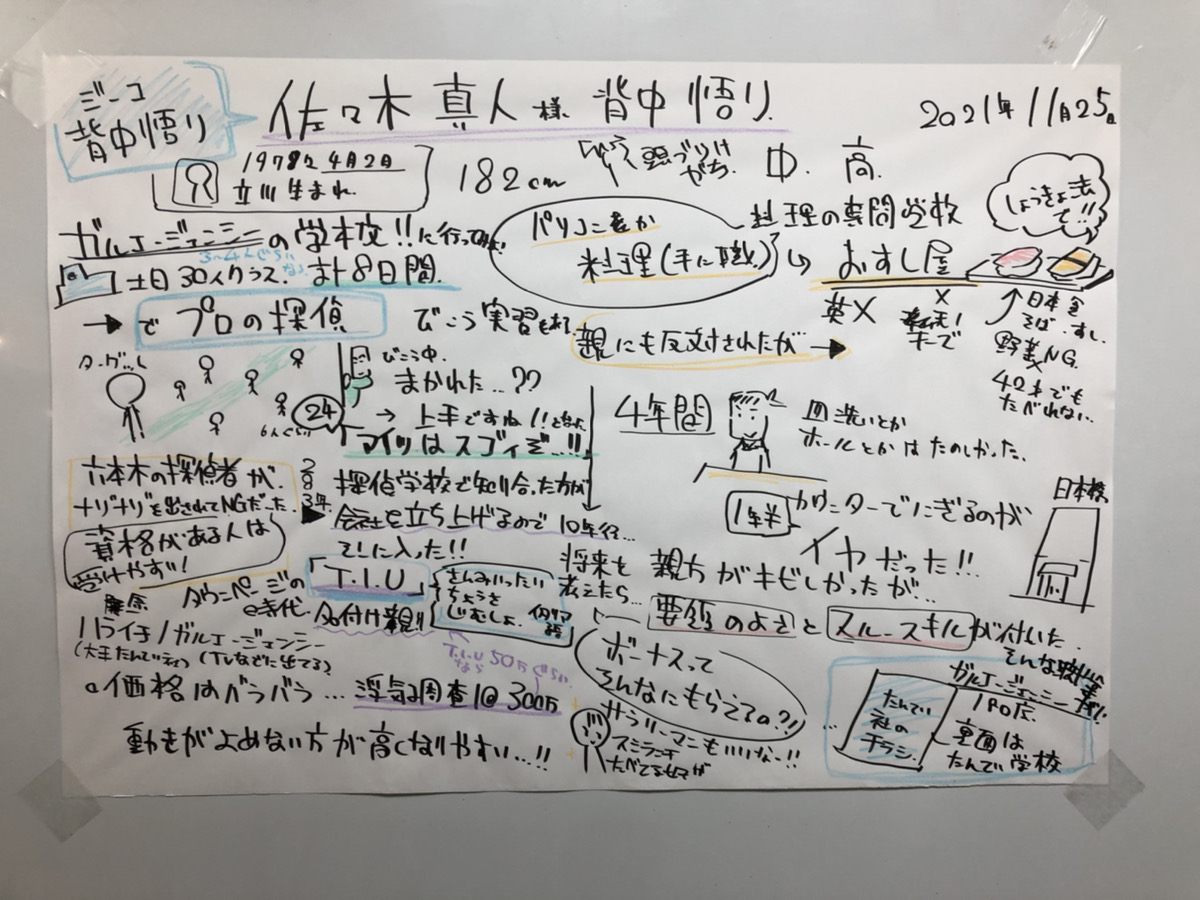 ジーコ
背中悟り
佐々木 真人様 背中悟り
2021年11月25日
1978年4月2日
立川生まれ
182cm
頭づりけがち
中. 高.
しょうきょ法で!!
ガルエージェンシーの学校!!に行ってみた
土日30人クラス. 計8日間.
パソコンとか
料理(手に職)
料理の専門学校
おすし屋
→で プロの探偵
びこう実習もあり
親にも反対されたが→
英×
日本食
そば・すし
野菜NG.
42才でも
たべれない..
ターゲット
6人ぐらい
24
びこう中.
まかれた...??
→上手ですね!!となった
「アイツはスゴイぞ...!!
4年間
皿洗いとか
ホールとかはたのしかった.
六本木の探偵者が.
ナリナリを出されてNGだった.
資格がある人は
受けやすい!
283年.
探偵学校で知り合った方が
会社を立ち上げるので 10年行...
でしに入った!!
1年半
カウンターでにぎるのが
イヤだった!!
日本橋
将来を
考えたら...
親方がキビしかったが..
要領のよさとスルースキルが付いた.
タウンページの
時代.
「T.I.U」
名付け親!!
さんみいったい
ちょうさ
じむしょ.
イタリア語
T.I.U 50万ぐらい
なら
ハライチ/ガルエージェンシー
(大手たんてい) (TVなどに出てる)
。価格はバラバラ...浮気調査1回300万
動きがよめない方が高くなりやすい...!!
ボーナスって
そんなにもらえるの?!
サラリーマンもいいなー!!
そんな時
ガルエージェンシー
たんてい
社の
チラシ.
裏面は
たんてい学校